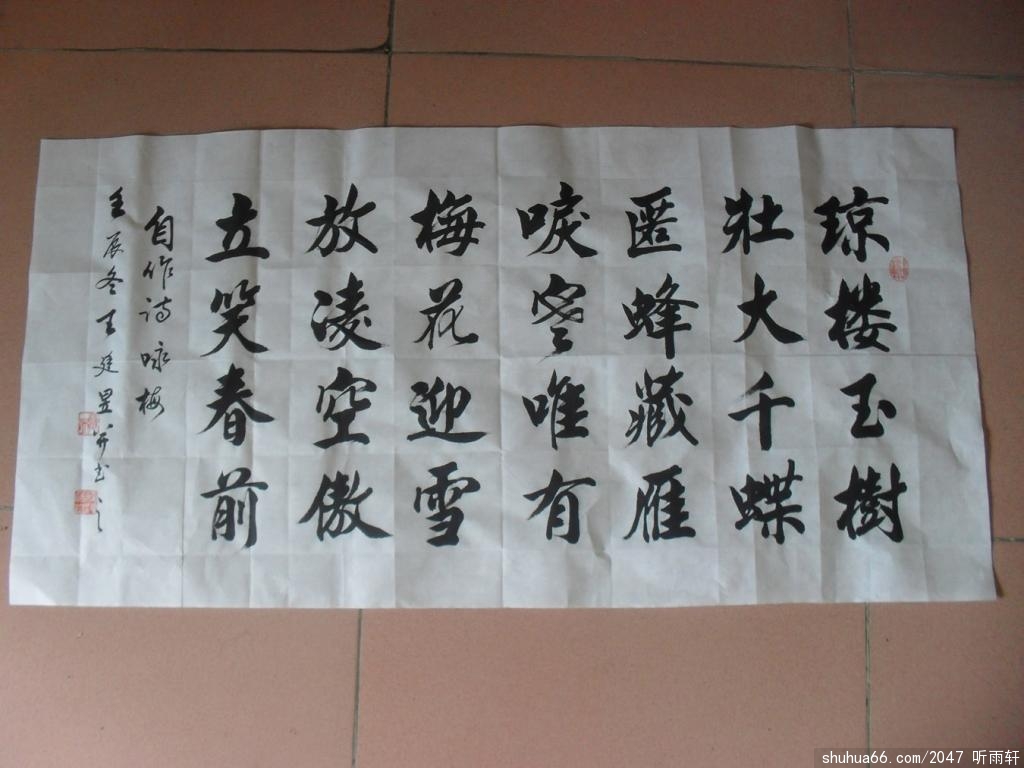 琼楼玉树
壮大千蝶
匿蜂藏雁
唳寒唯有
梅花迎雪
放凌空傲
立笑春前
自作诗咏梅
壬辰冬王廷昱并书之
shuhua66.com/2047 听雨轩